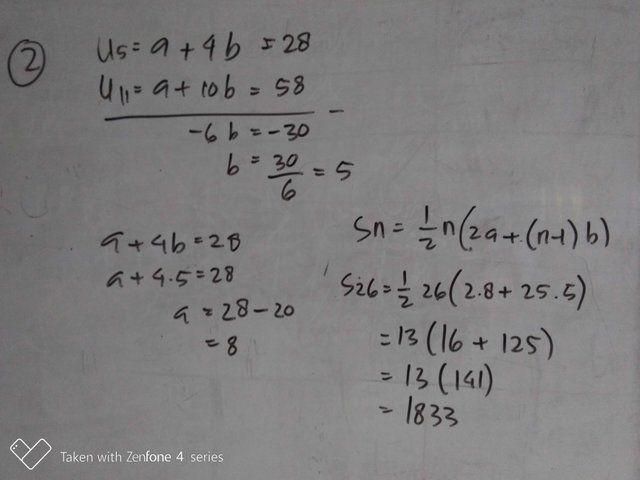 2
U5 = a + 4b = 28
U11 = a + 10b = 58
-6b = -30 -
b = 30/6 = 5
a + 4b = 28
a + 4.5 = 28
a = 28 - 20
= 8
Sn = 1/2 n(2a + (n-1)b)
S26 = 1/2 26(2.8 + 25.5)
= 13(16 + 125)
= 13(141)
= 1833
Taken with Zenfone 4 series